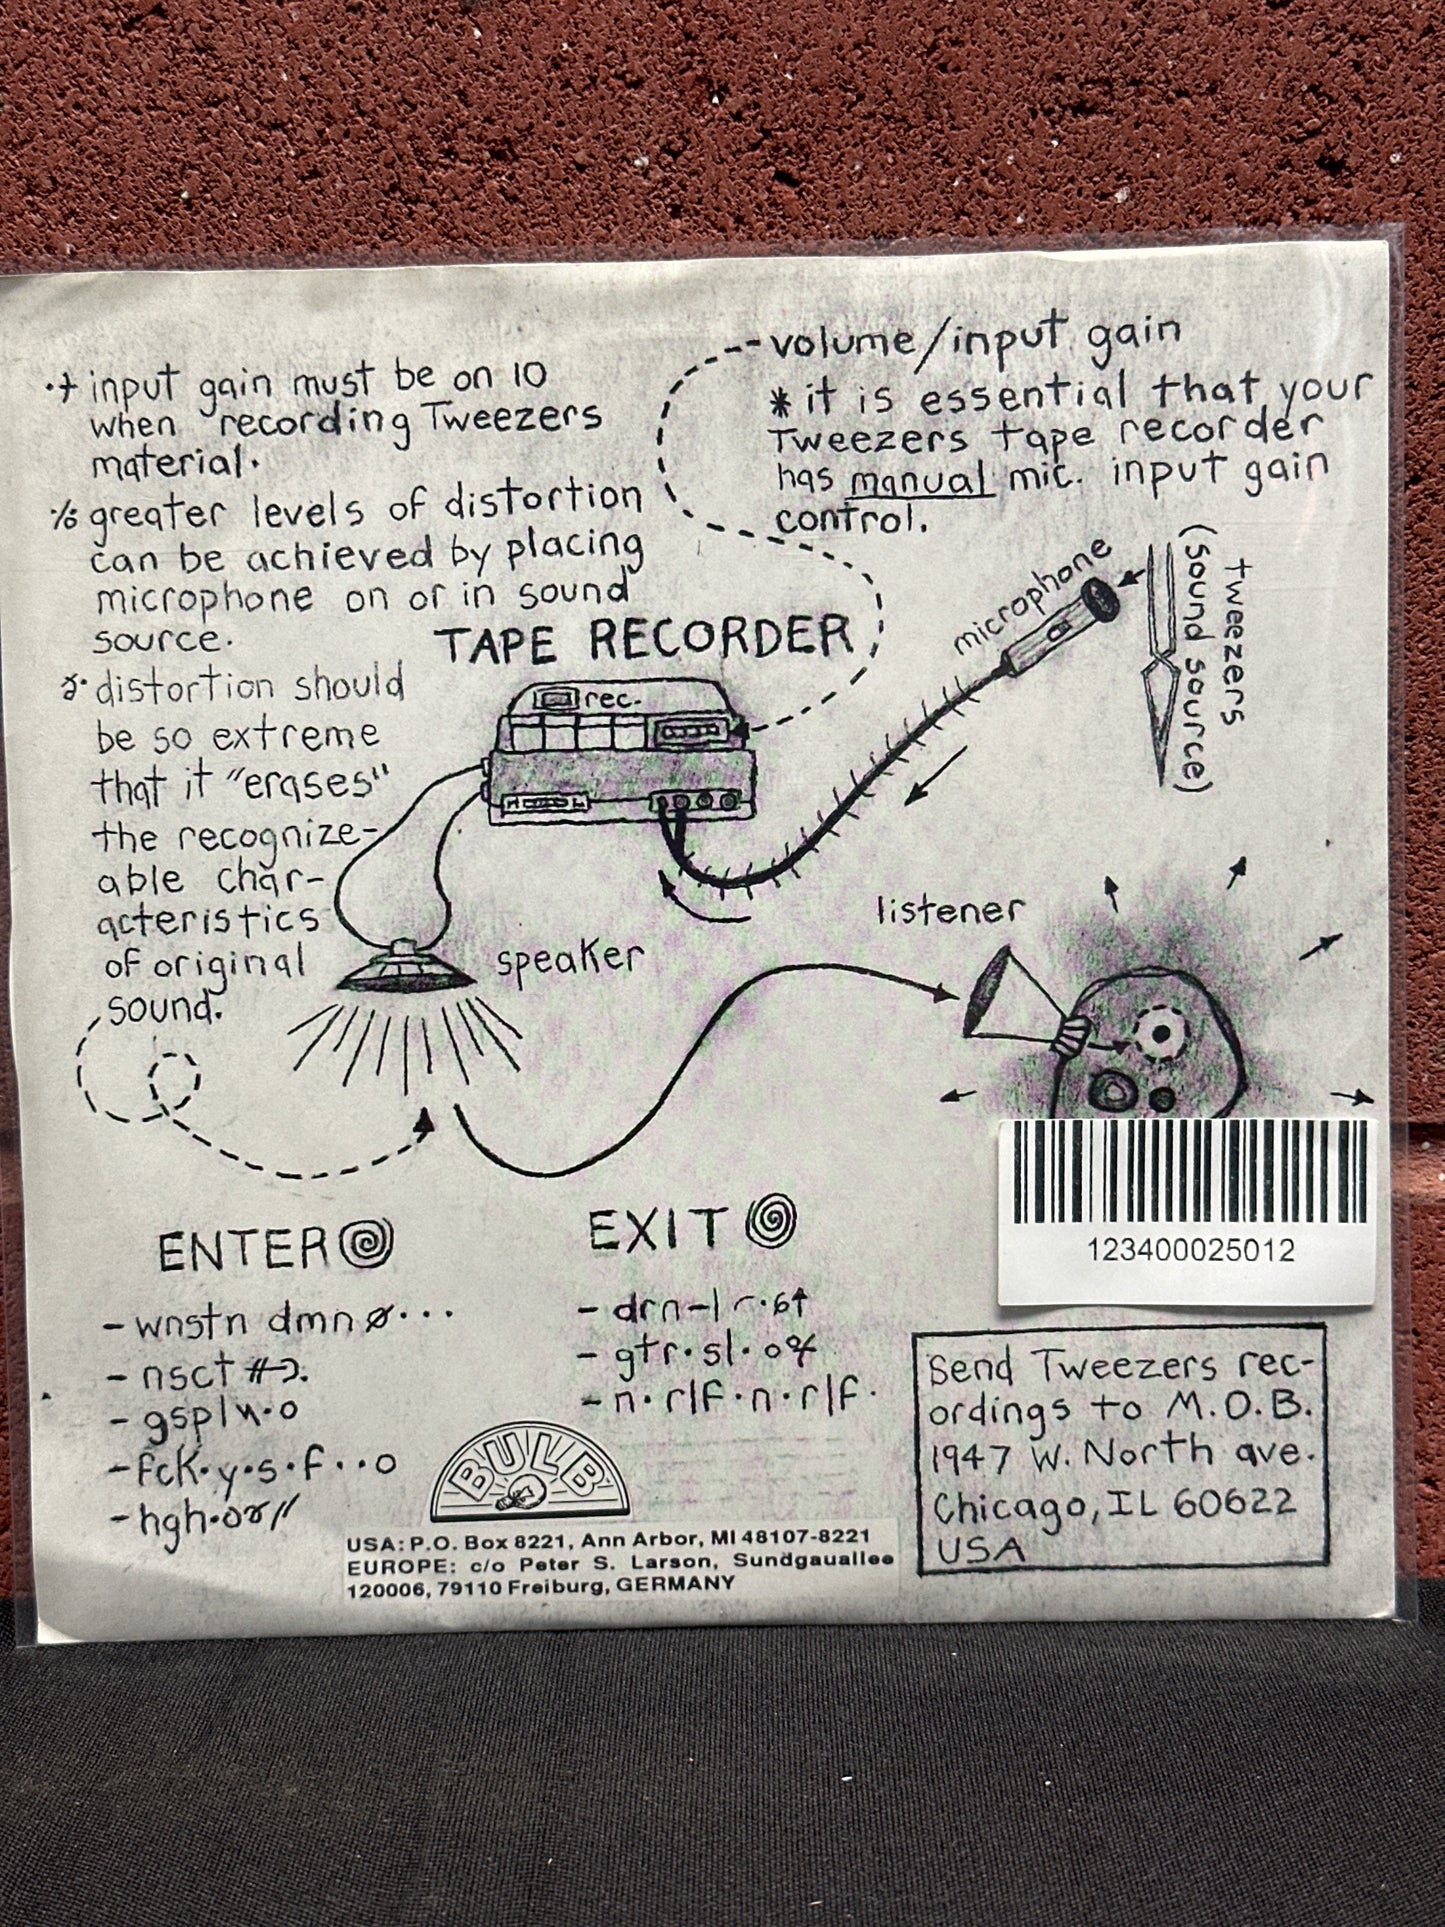 input gain must be on 10
when recording Tweezers
material.
greater levels of distortion
can be achieved by placing
microphone on or in sound
source.
distortion should
be so extreme
that it "erases"
the recognize-
able char-
acteristics
of original
sound.
volume/input gain
*it is essential that your
Tweezers tape recorder
has manual mic. input gain
control.
TAPE RECORDER
rec.
microphone
tweezers
(sound source)
speaker
listener
123400025012
ENTER
- wnstn dmn ø...
- nsct
- gspl
- fck.y.s.f..o
- hgh.
EXIT
- drn-
- gtr.sl.
- n.rlf.n.rlf.
BULB
USA: P.O. Box 8221, Ann Arbor, MI 48107-8221
EUROPE: c/o Peter S. Larson, Sundgauallee
120006, 79110 Freiburg, GERMANY
Send Tweezers rec-
ordings to M.O.B.
1947 W. North ave.
Chicago, IL 60622
USA